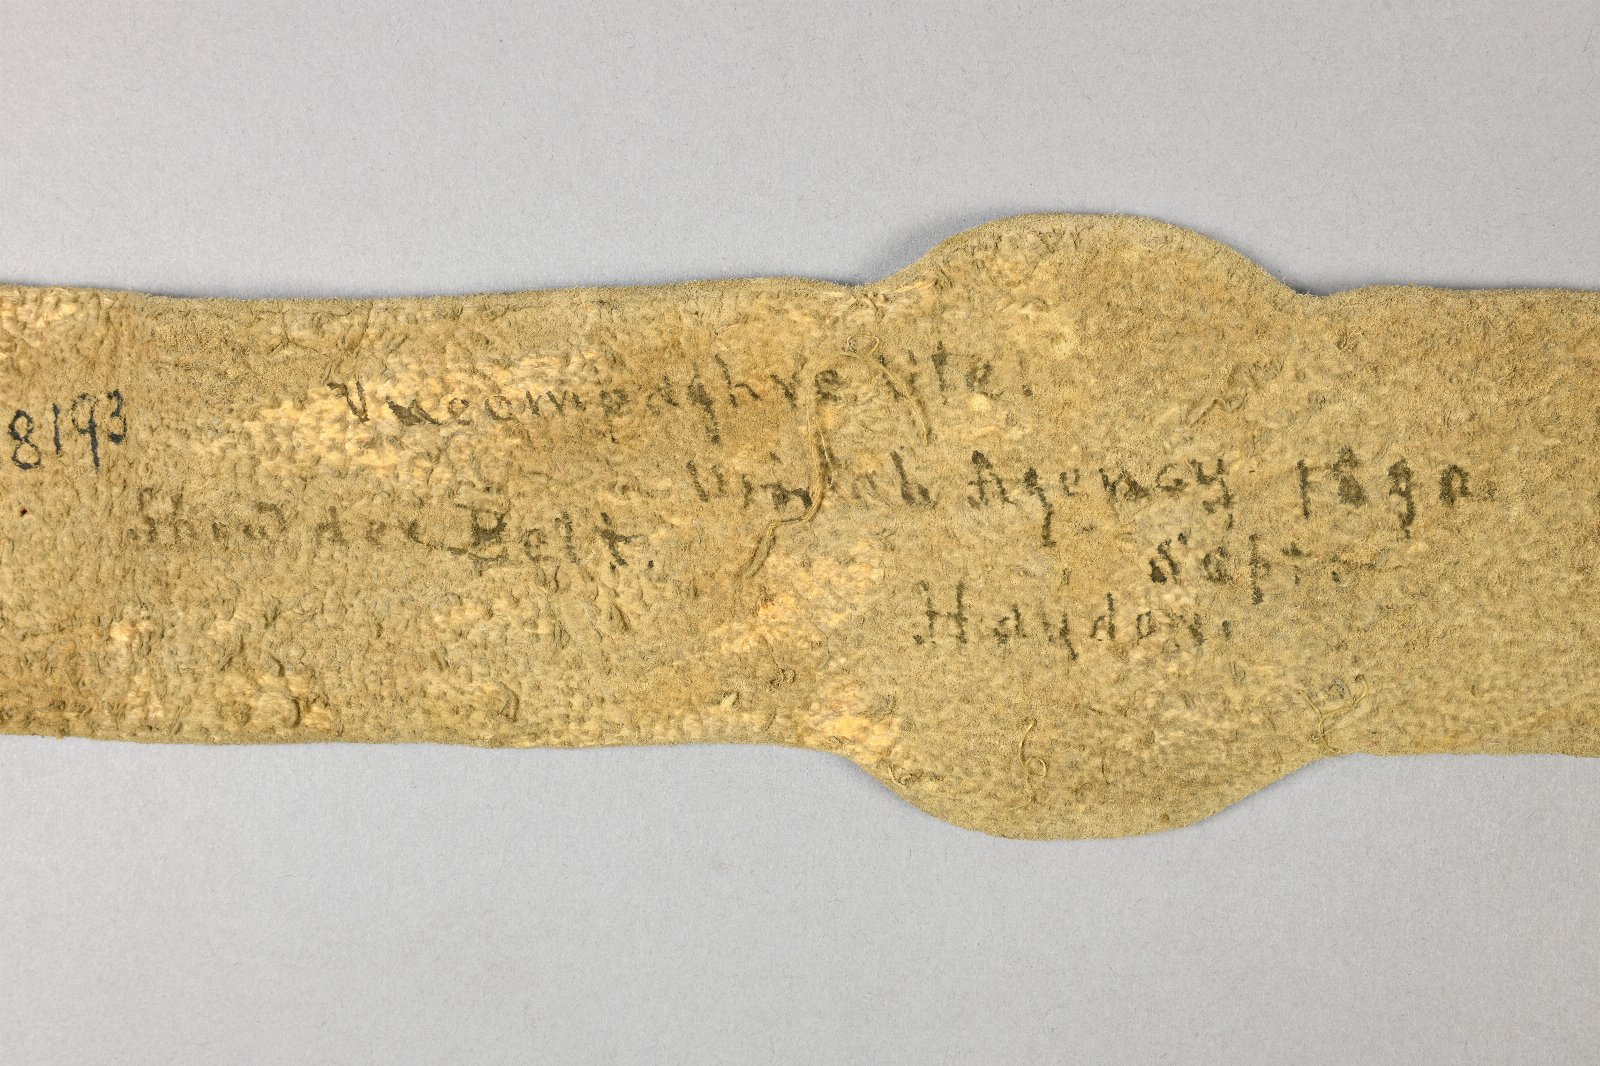 8193
Uncompaghre Ute.
Uintah Agency 1890.
Shoulder Belt.
Hayden.